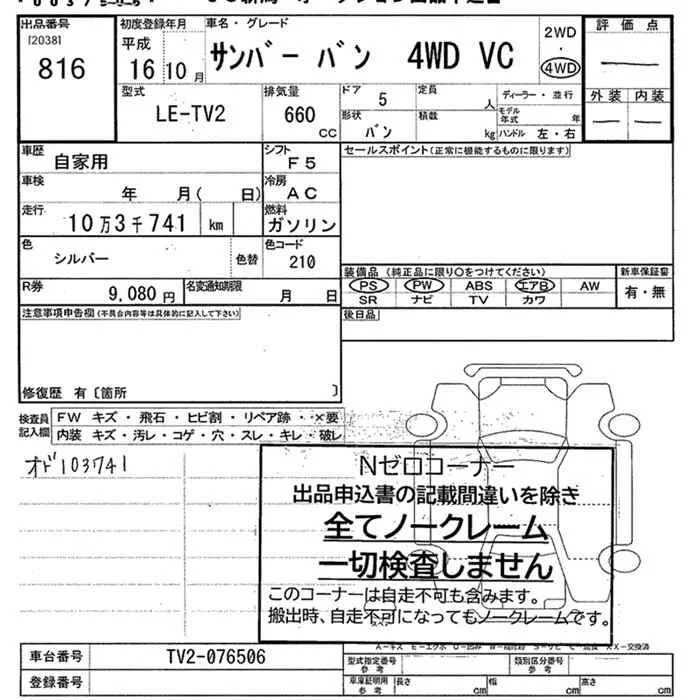 出品番号
[2038]
816
初度登録年月
平成
16 10月
車名・グレード
サンバー バン 4WD VC
2WD
・
4WD
評価点
—
外装 内装
— —
型式
LE-TV2
排気量
660
CC
ドア
5
定員
人
ディーラー・並行
モデル年式 年
形状
バン
積載
kg
ハンドル 左・右
車歴
自家用
シフト
F5
セールスポイント(正常に機能するものに限ります)
車検
年 月( 日)
冷房
AC
走行
10万3千741 km
燃料
ガソリン
色
シルバー
色替
色コード
210
装備品 (純正品に限り〇をつけてください)
新車保証書
PS PW ABS エアB AW
有・無
SR ナビ TV カワ
R券
9,080円
名変通知期限
月 日
注意事項申告欄(不具合内容等は具体的に記入して下さい)
後日品
修復歴 有〔箇所 〕
検査員記入欄
FW キズ・飛石・ヒビ割・リペア跡・×要
内装 キズ・汚レ・コゲ・穴・スレ・キレ・破レ
オド103741
Nゼロコーナー
出品申込書の記載間違いを除き
全てノークレーム
一切検査しません
このコーナーは自走不可も含みます。
搬出時、自走不可になってもノークレームです。
車台番号
TV2-076506
登録番号
型式指定番号
参考
類別区分番号
参考
車庫証明用
参考
長さ cm
幅 cm
高さ cm